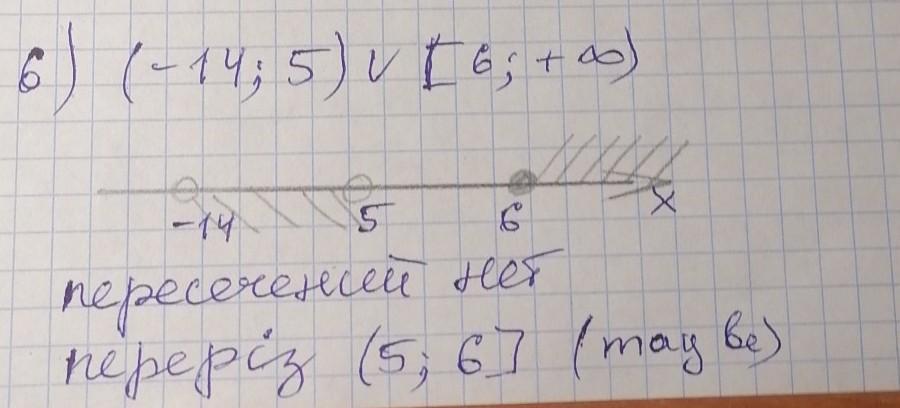 6) (-14; 5) ∪ [6; +∞)
-14 5 6 x
пересечений нет
переріз (5; 6] (may be)